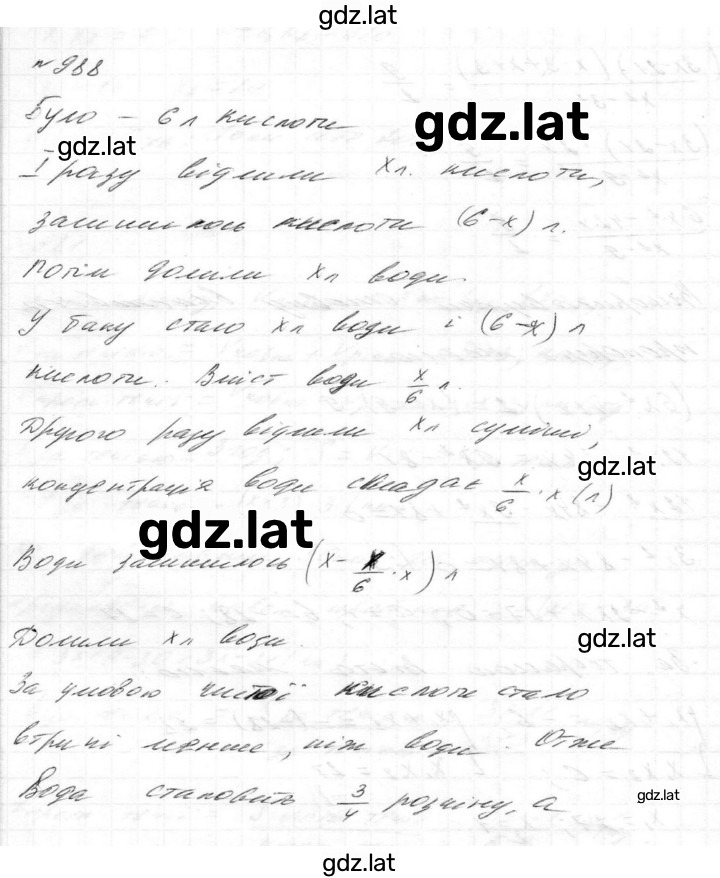 gdz.lat
№988
Було – 6 л кислоти
gdz.lat
gdz.lat
I разу відлили x л. кислоти,
залишилось кислоти (6-x) л.
Потім долили x л води.
У баку стало x л води і (6-x) л
кислоти. Вміст води x/6 л.
Другого разу відлили x л суміші,
gdz.lat
концентрація води складає x/6 · x (л)
gdz.lat
Води залишилось (x - x/6 · x) л
Долили x л води.
gdz.lat
За умовою чистої кислоти стало
втричі менше, ніж води. Отже
Вода становить 3/4 розчину, а
gdz.lat
gdz.lat